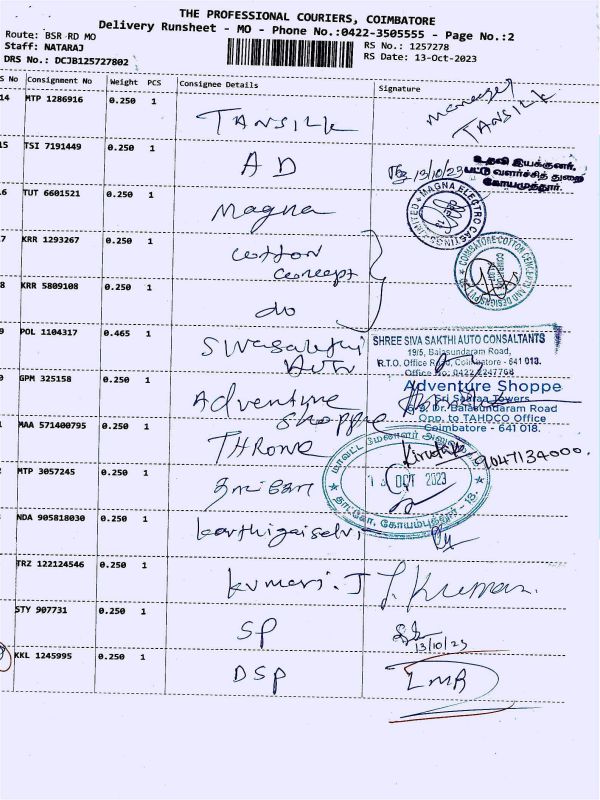 THE PROFESSIONAL COURIERS, COIMBATORE
Delivery Runsheet - MO - Phone No.:0422-3505555 - Page No.:2
Route: BSR RD MO
Staff: NATARAJ
DRS No.: DCJB125727802
RS No.: 1257278
RS Date: 13-Oct-2023
S No Consignment No Weight PCS Consignee Details Signature
14 MTP 1286916 0.250 1 TANSILK manager TANSILK
15 TSI 7191449 0.250 1 A D 13/10/23
உதவி இயக்குனர்.
பட்டு வளர்ச்சித் துறை
கோயமுத்தூர்.
6 TUT 6601521 0.250 1 Magna
MAGNA ELECTRO CASTINGS LIMITED
7 KRR 1293267 0.250 1 cotton concept
COIMBATORE COTTON CONCEPTS AND DESIGNS
8 KRR 5809108 0.250 1 do
9 POL 1104317 0.465 1 Sivasakthi Auto
SHREE SIVA SAKTHI AUTO CONSALTANTS
19/5, Balasundaram Road,
R.T.O. Office Road, Coimbatore - 641 018.
Office No: 0422 2247768
0 GPM 325158 0.250 1 Adventure Shoppe
Adventure Shoppe
Towers
Dr. Balasundaram Road
Opp. to TAHDCO Office
Coimbatore - 641 018.
1 MAA 571400795 0.250 1 THRONE 9047134000.
2 MTP 3057245 0.250 1 தாட்கோ
மாவட்ட மேலாளர்
13 OCT 2023
தாட்கோ, கோயம்புத்தூர் - 18.
NDA 905818030 0.250 1 karthigaiselvi
TRZ 122124546 0.250 1 kumari. J J. Kumari
STY 907731 0.250 1 SP 13/10/23
KKL 1245995 0.250 1 DSP